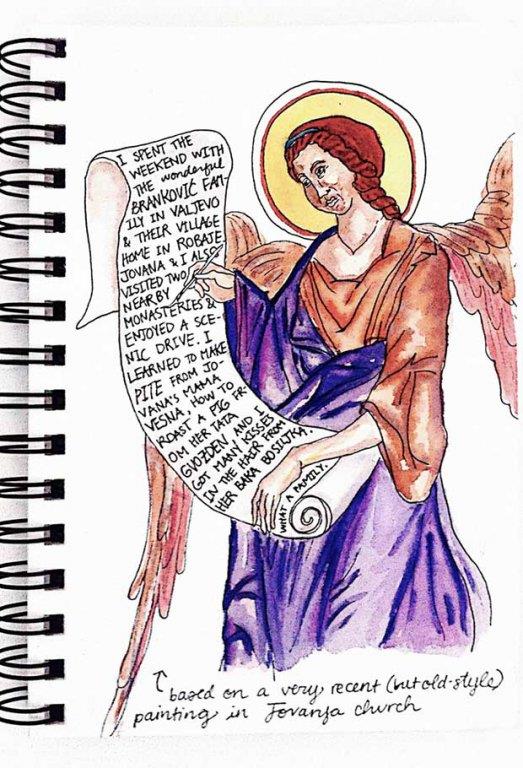 I SPENT THE
WEEKEND WITH
THE wonderful
BRANKOVIĆ FAM-
ILY IN VALJEVO
& THEIR VILLAGE
HOME IN ROBAJE.
JOVANA & I ALSO
VISITED TWO
NEARBY
MONASTERIES &
ENJOYED A SCE-
NIC DRIVE. I
LEARNED TO MAKE
PITE FROM JO-
VANA'S MAMA
VESNA, HOW TO
ROAST A PIG FR-
OM HER TATA
GVOZDEN, AND I
GOT MANY KISSES
IN THE HAIR FROM
HER BAKA BOSILJKA.
WHAT A FAMILY.
based on a very recent (but old-style)
painting in Jovanja church